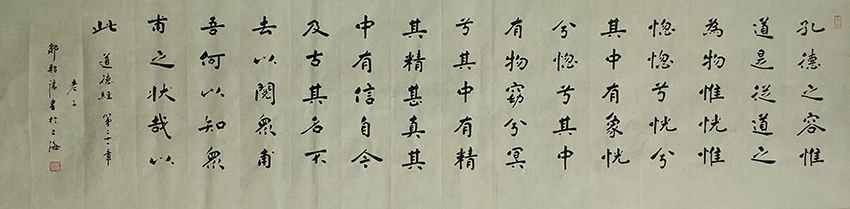 孔德之容惟
道是從道之
為物惟恍惟
惚惚兮恍兮
其中有象恍
兮惚兮其中
有物窈兮冥
兮其中有精
其精甚真其
中有信自今
及古其名不
去以閱眾甫
吾何以知眾
甫之狀哉以
此 道德經 第二十一章
老子
書於上海